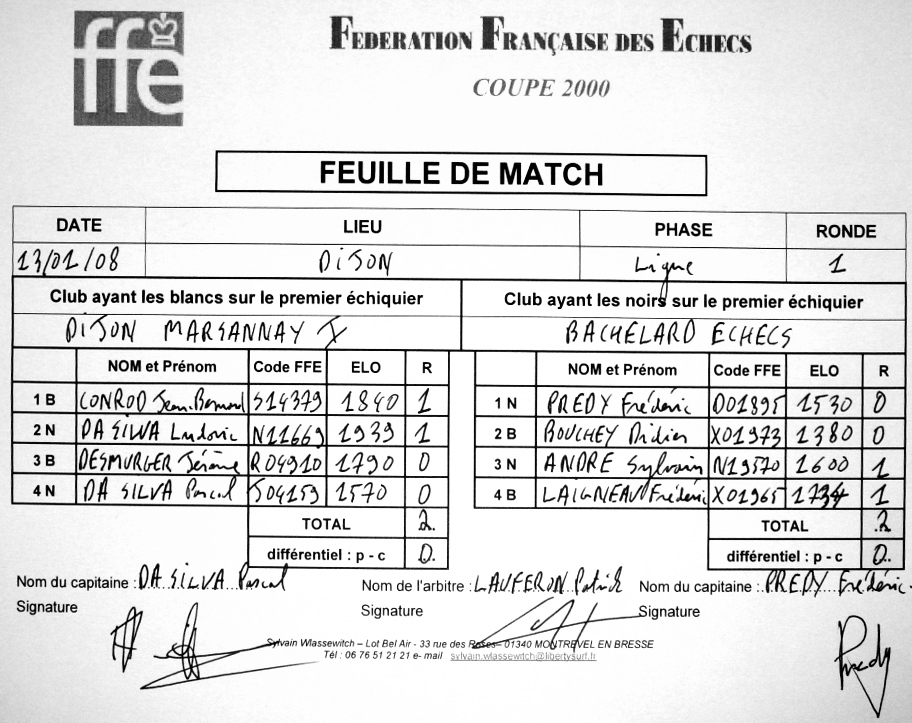 ffe
FEDERATION FRANÇAISE DES ECHECS
COUPE 2000
FEUILLE DE MATCH
DATE LIEU PHASE RONDE
13/01/08 DIJON Ligue 1
Club ayant les blancs sur le premier échiquier Club ayant les noirs sur le premier échiquier
DIJON MARSANNAY BACHELARD ECHECS
NOM et Prénom Code FFE ELO R NOM et Prénom Code FFE ELO R
1 B CONROD Jean-Bernard S14379 1840 1 1 N PREDY Frédéric D01895 1530 0
2 N DA SILVA Ludovic N11669 1939 1 2 B BOUCHEY Didier X01973 1380 0
3 B DESMURGER Jérôme R04910 1790 0 3 N ANDRE Sylvain N19570 1600 1
4 N DA SILVA Pascal J04159 1570 0 4 B LAIGNEAU Frédéric X01965 1734 1
TOTAL 2 TOTAL 2
différentiel : p - c 0 différentiel : p - c 0
Nom du capitaine : DA SILVA Pascal Nom de l'arbitre : LAUFERON Patrick Nom du capitaine : PREDY Frédéric
Signature Signature Signature
Predy
Sylvain Wlassewitch – Lot Bel Air - 33 rue des Roses– 01340 MONTREVEL EN BRESSE
Tél : 06 76 51 21 21 e- mail sylvain.wlassewitch@libertysurf.fr